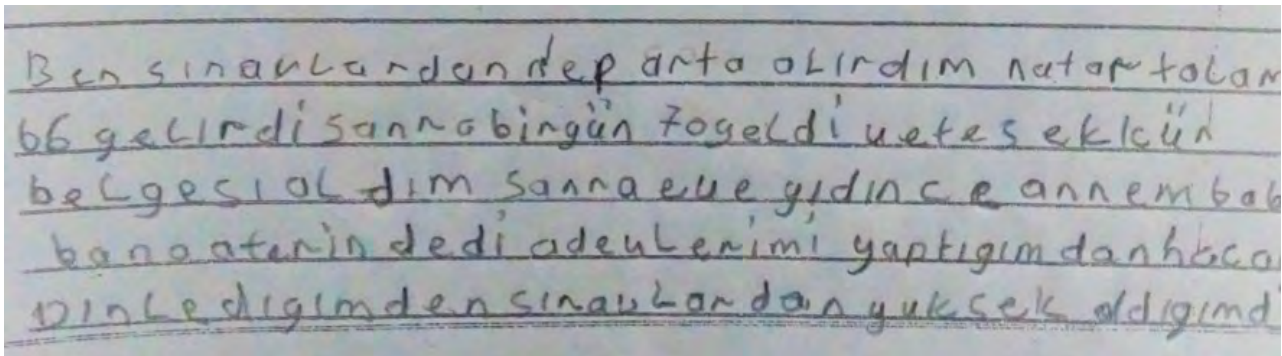 Ben sınavlardan dep arta olırdım natar tolam
66 gelirdi sanna bingün 70 geldi vetes eklcün
belgesi al dım sanna eve gıdınce annem bab
bana aterin dedi adevlerimi yaptıgım dan hoca
Dinledigimden sınavlardan yuksek aldıgımd